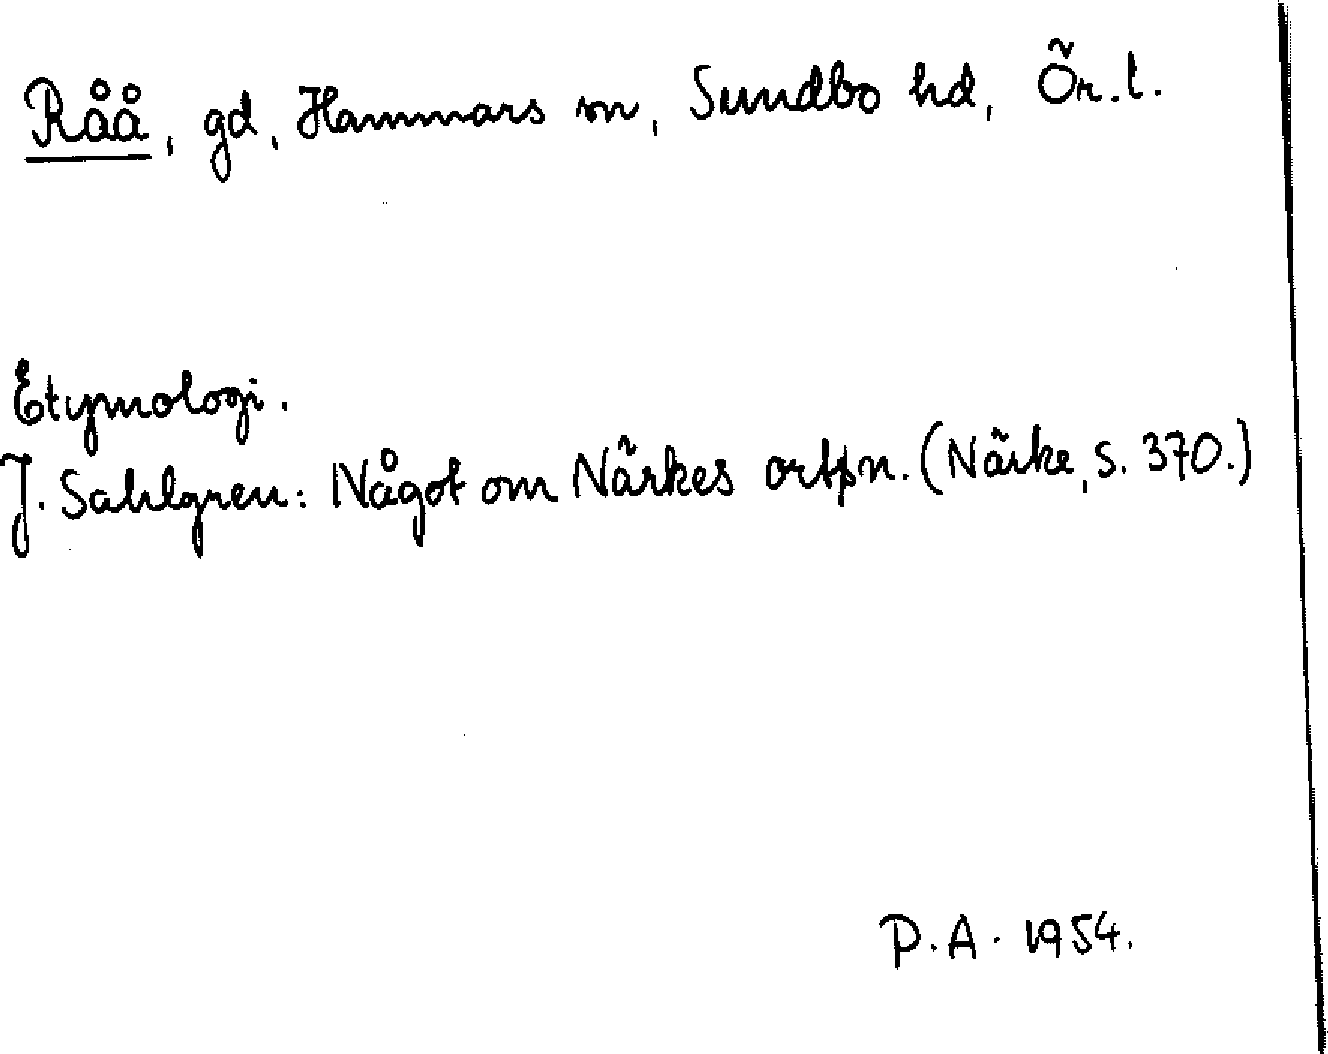 Råå, gd, Hammars sn, Sundbo hd, Ör. l.
Etymologi.
J. Sahlgren: Något om Närkes ortpn. (Närke, s. 370.)
P. A. 1954.